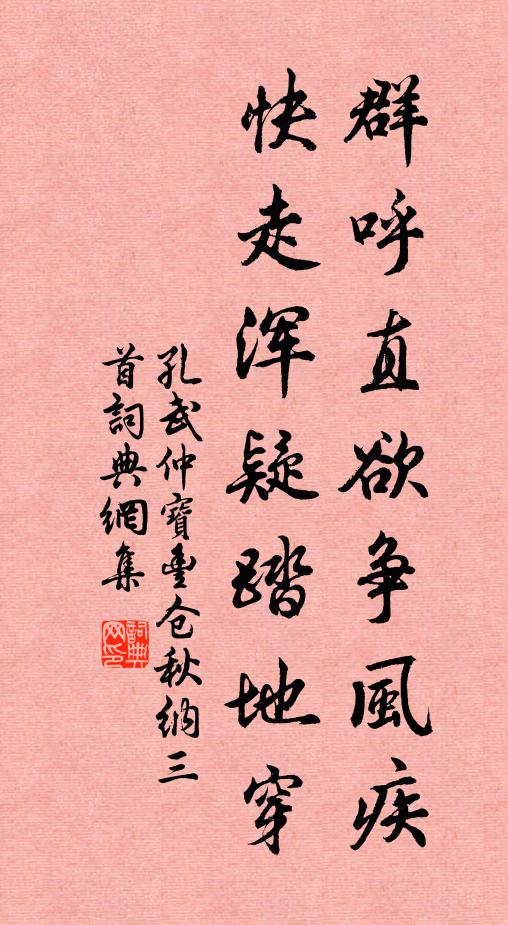 群呼直欲争風疾
快走渾疑踏地穿
孔武仲寶豊仓秋納三
首詞典網集
詞典网印